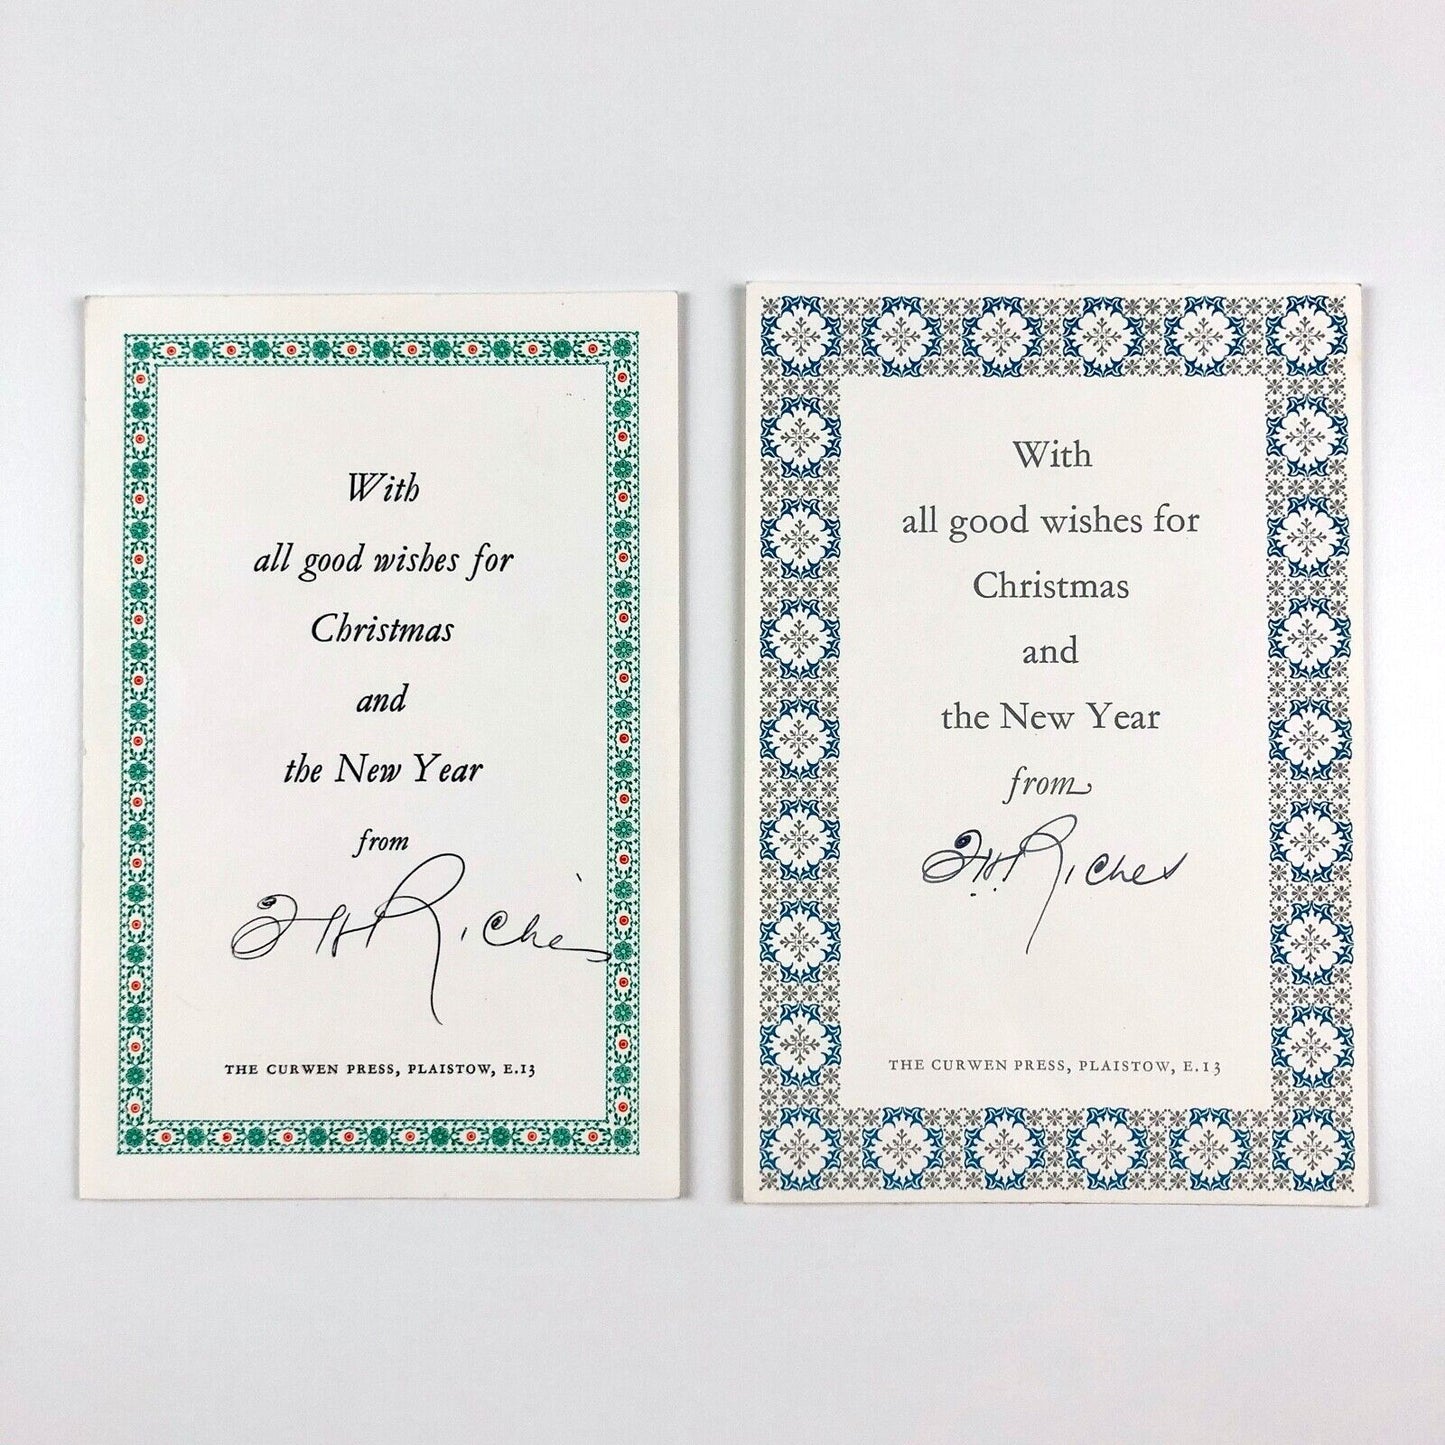 With
all good wishes for
Christmas
and
the New Year
from
Riches
THE CURWEN PRESS, PLAISTOW, E.13
With
all good wishes for
Christmas
and
the New Year
from
H. Riches
THE CURWEN PRESS, PLAISTOW, E.13